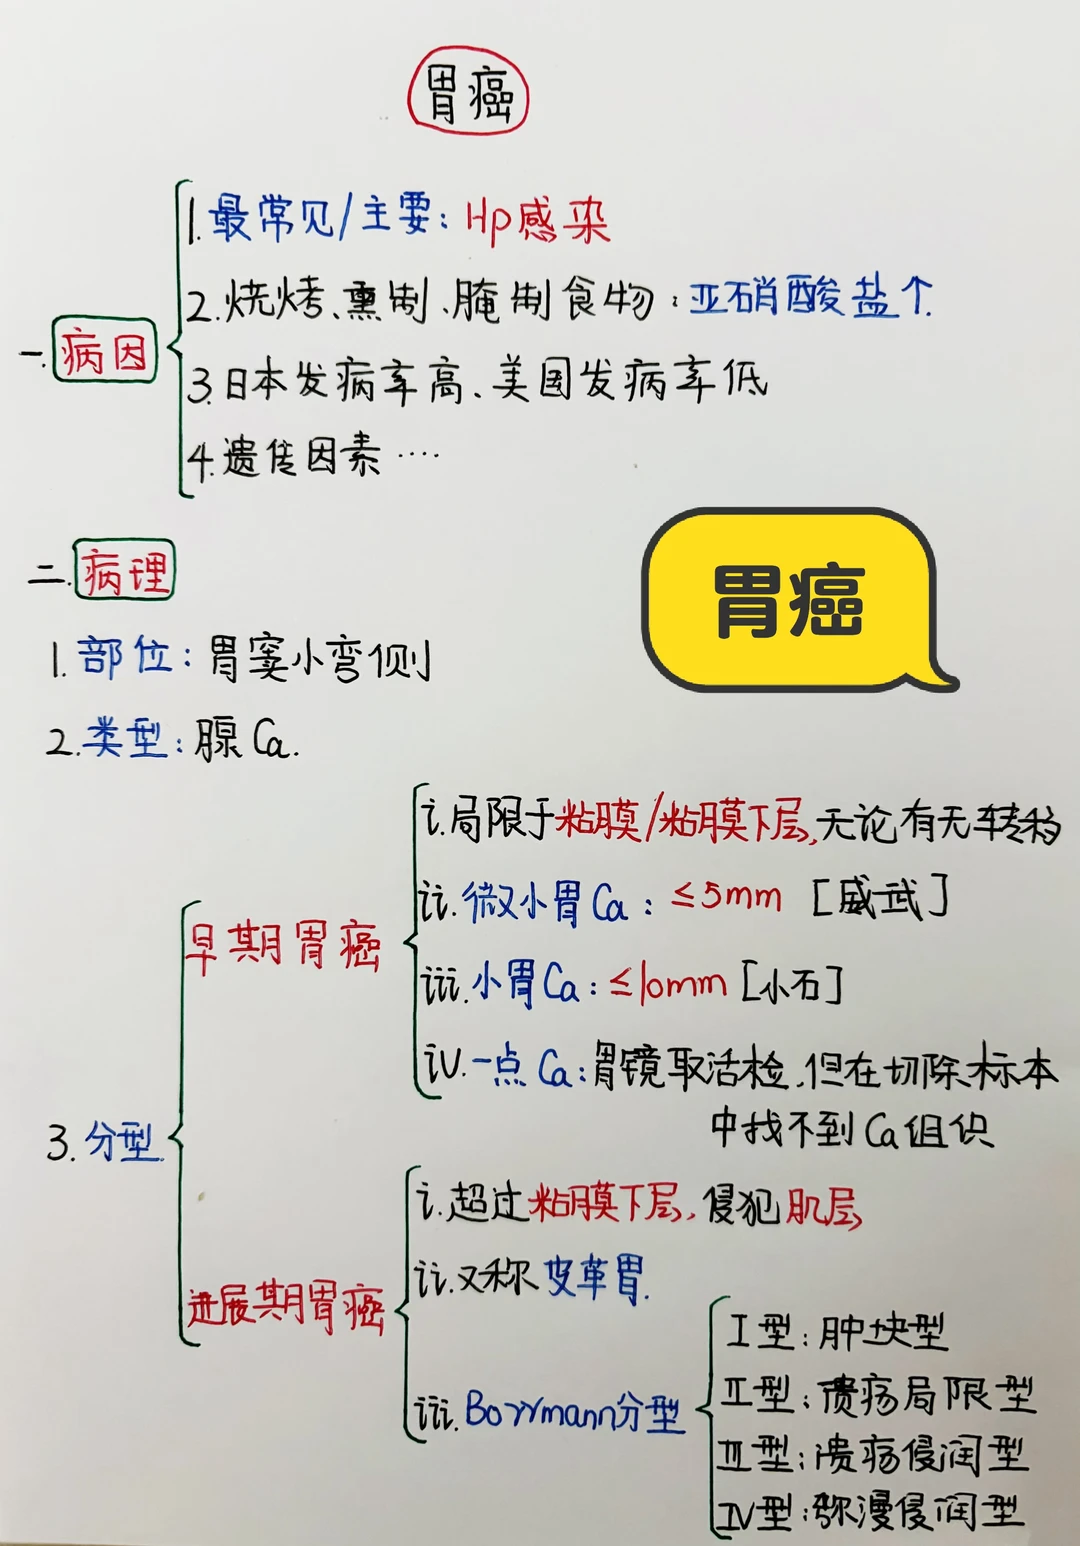 胃癌
一.病因
1.最常见/主要:Hp感染
2.烧烤、熏制、腌制食物:亚硝酸盐个
3.日本发病率高、美国发病率低
4.遗传因素····
二.病理
胃癌
1.部位:胃窦小弯侧
2.类型:腺Ca.
3.分型
早期胃癌
i.局限于粘膜/粘膜下层,无论有无转移
ii.微小胃Ca:≤5mm [威武]
iii.小胃Ca:≤10mm [小石]
iV.一点Ca:胃镜取活检,但在切除标本
中找不到Ca组织
进展期胃癌
i.超过粘膜下层,侵犯肌层
ii.又称皮革胃.
iii.Borrmann分型
I型:肿块型
II型:溃疡局限型
III型:溃疡侵润型
IV型:弥漫侵润型